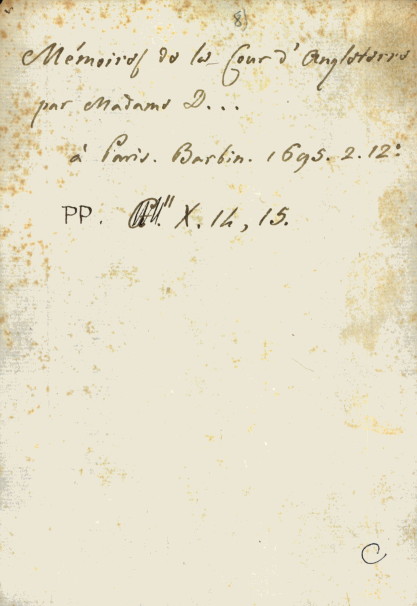 8
Mémoires de la Cour d'Angleterre
par Madame D...
à Paris. Barbin. 1695. 2. 12°
PP. X. 14, 15.
C